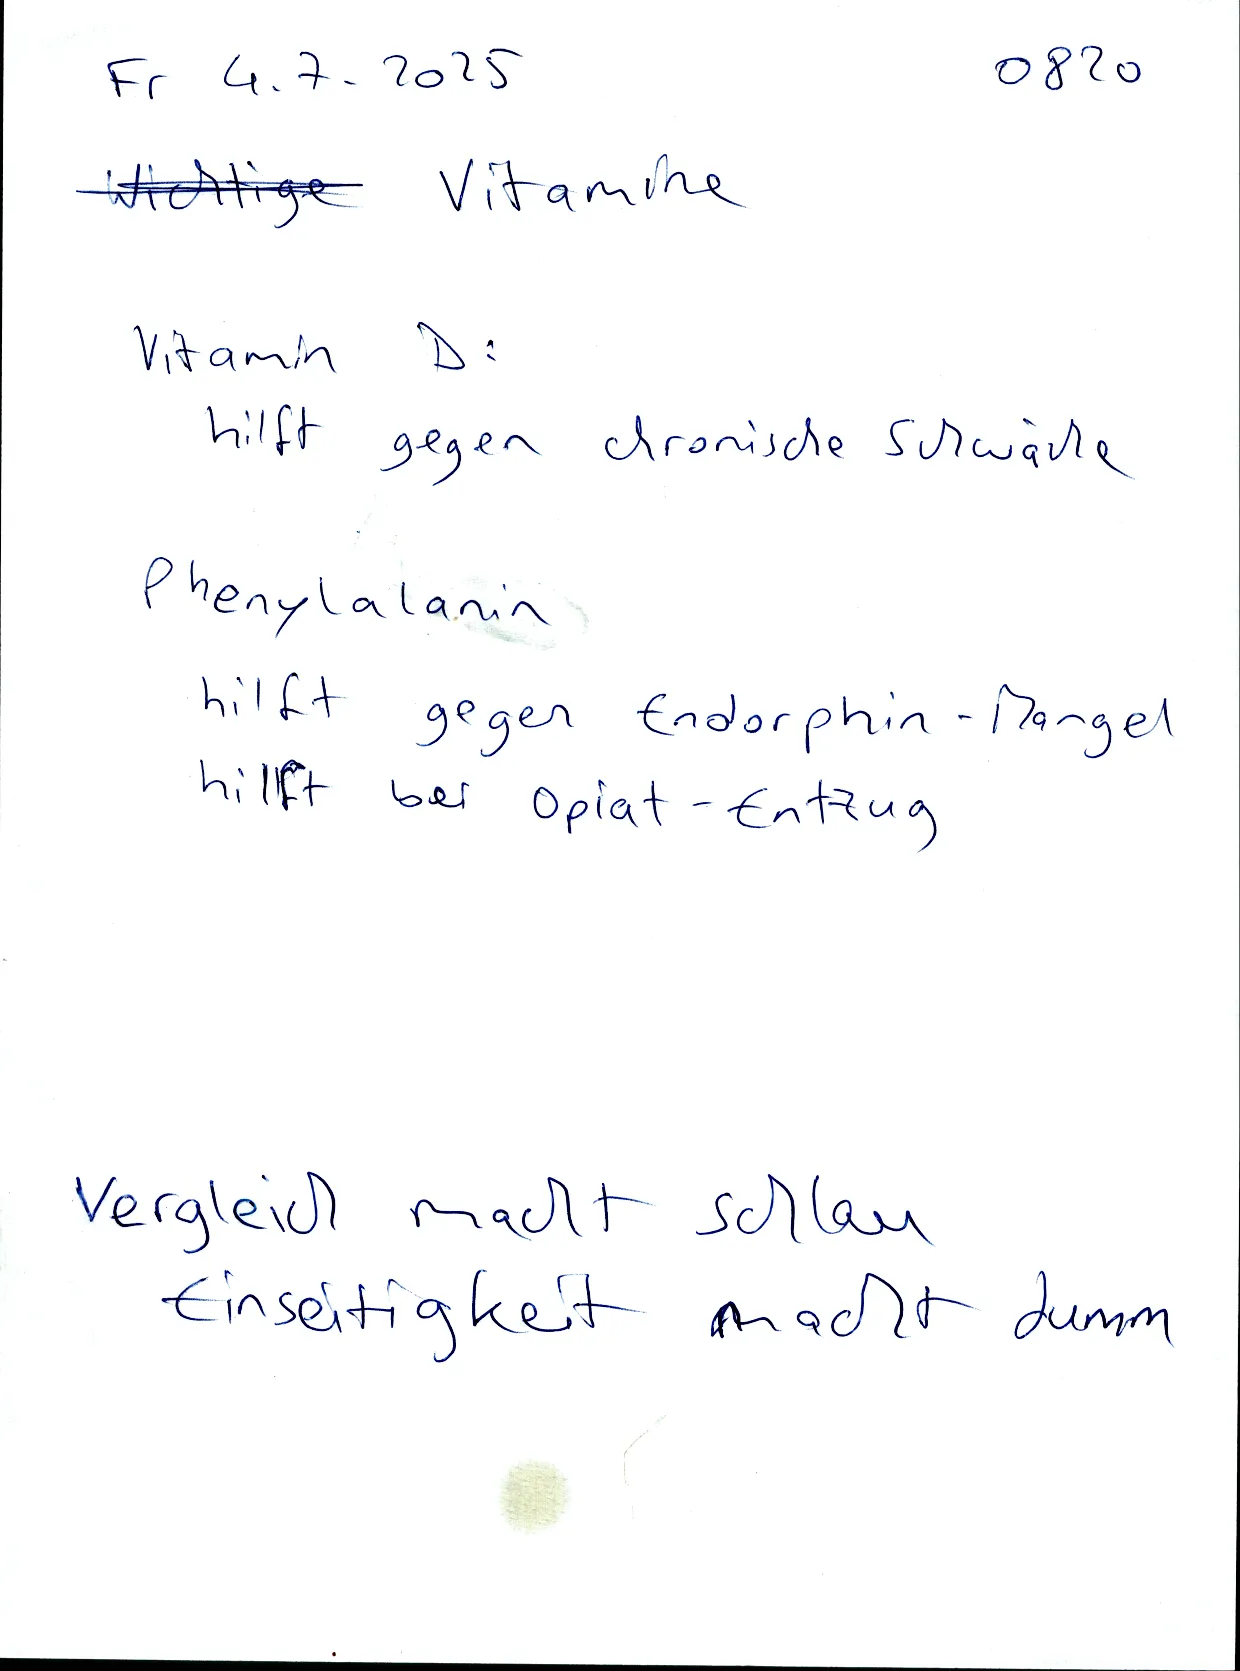 Fr 4.7.2025 0820
Wichtige Vitamine
Vitamin D:
hilft gegen chronische Schwäche
Phenylalanin
hilft gegen Endorphin-Mangel
hilft bei Opiat-Entzug
Vergleich macht schlau
Einseitigkeit macht dumm